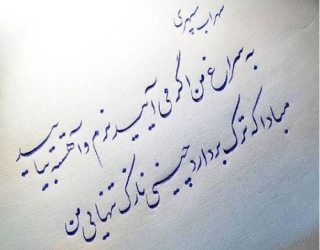 سهراب سپهری
به سراغ من اگر می آیید نرم و آهسته بیایید
مبادا که ترک بردارد چینی نازک تنهایی من